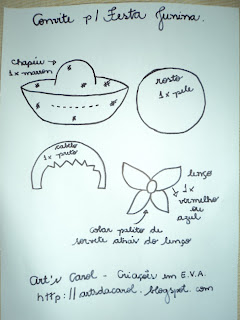 Convite p/ Festa Junina.
chapéu
1x marrom
rosto
1x pele
cabelo
1x preto
lenço
1x
vermelho
ou
azul
colar palito de
sorvete atrás do lenço
Art's Carol - Criações em E.V.A.
http://artsdacarol.blogspot.com